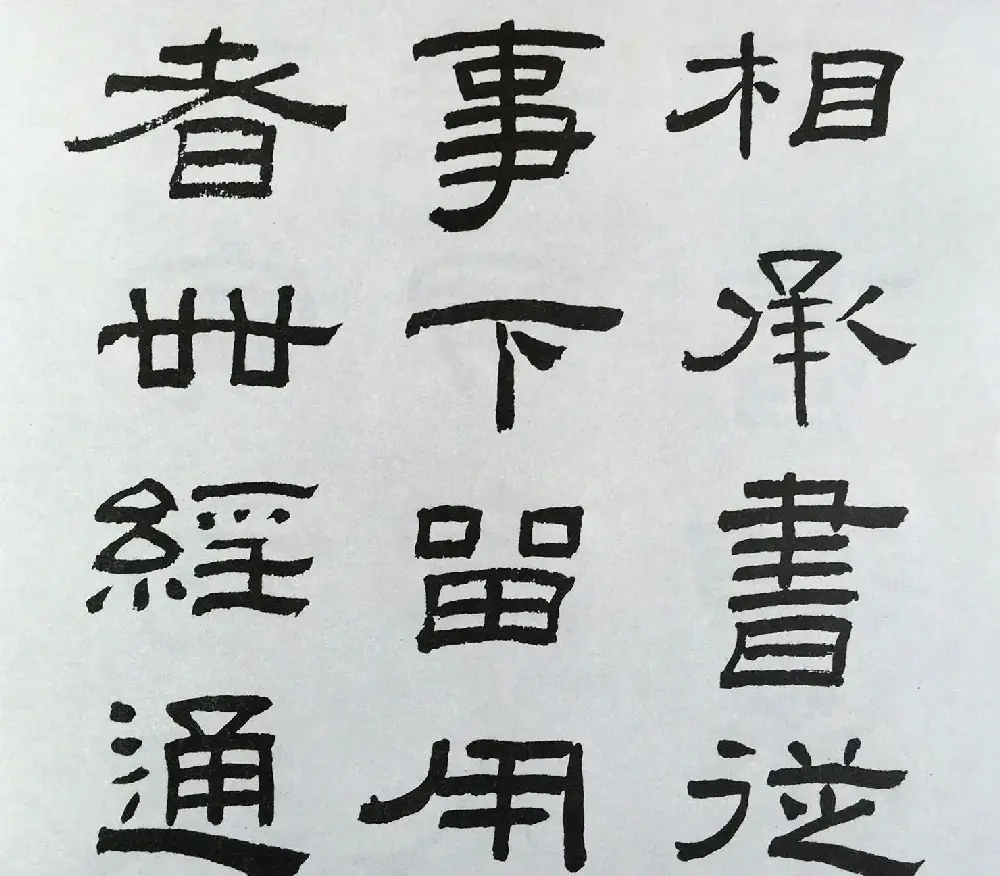 相承書從
事下留用
者卌經通